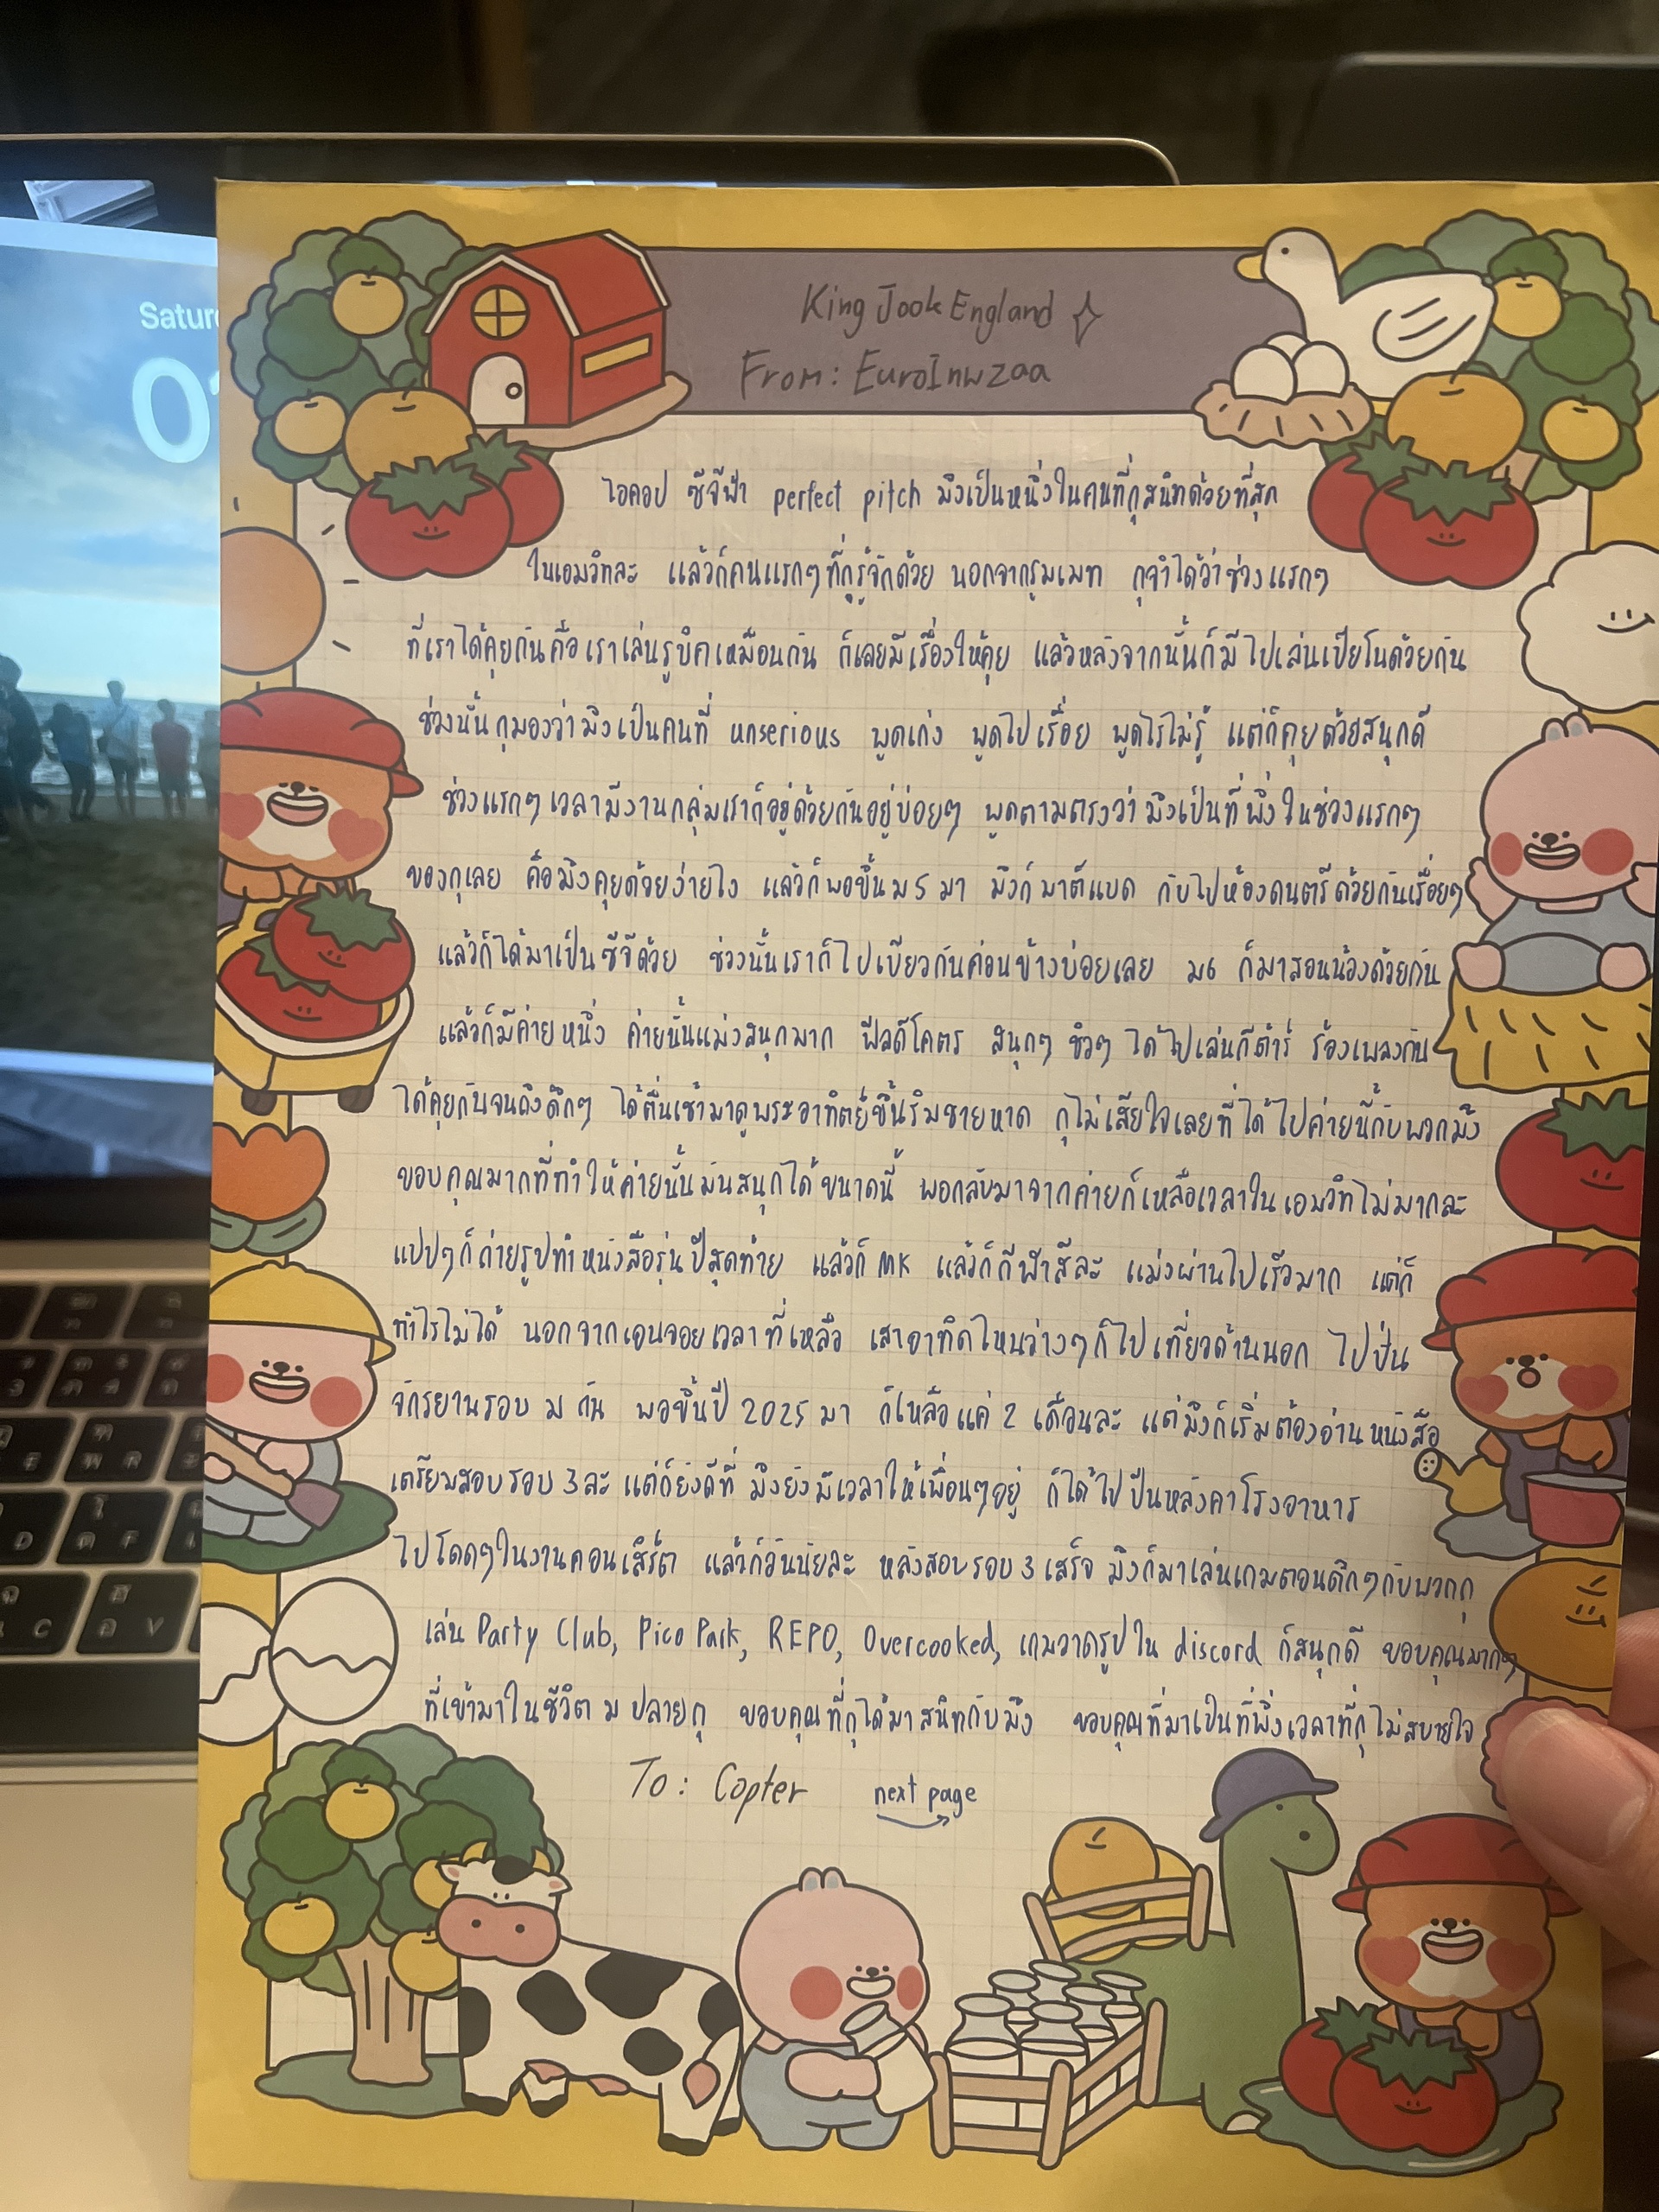 Satur
King Jook England
From: EuroInwzaa
ไอคอป ซีจีฟ้า perfect pitch มึงเป็นหนึ่งในคนที่กูสนิทด้วยที่สุด
ในเอมวิทละ แล้วก็คนแรกๆที่กูรู้จักด้วย นอกจากรูมเมท กูจำได้ว่าช่วงแรกๆ
ที่เราได้คุยกันคือเราเล่นรูบิคเหมือนกัน ก็เลยมีเรื่องให้คุย แล้วหลังจากนั้นก็มีไปเล่นเปียโนด้วยกัน
ช่วงนั้นกูมองว่ามึงเป็นคนที่ unserious พูดเก่ง พูดไปเรื่อย พูดไรไม่รู้ แต่ก็คุยด้วยสนุกดี
ช่วงแรกๆเวลามีงานกลุ่มเราก็อยู่ด้วยกันอยู่บ่อยๆ พูดตามตรงว่ามึงเป็นที่พึ่งในช่วงแรกๆ
ของกูเลย คือมึงคุยด้วยง่ายไง แล้วก็พอขึ้นม5 มา มึงก็มาตีแบด กับไปห้องดนตรีด้วยกันเรื่อยๆ
แล้วก็ได้มาเป็นซีจีด้วย ช่วงนั้นเราก็ไปเบียวกันค่อนข้างบ่อยเลย ม6 ก็มาสอนน้องด้วยกัน
แล้วก็มีค่ายหนึ่ง ค่ายนั้นแม่งสนุกมาก ฟีลดีโคตร สนุกๆ ชิวๆ ได้ไปเล่นกีต้าร์ ร้องเพลงกัน
ได้คุยกันจนถึงดึกๆ ได้ตื่นเช้ามาดูพระอาทิตย์ขึ้นริมชายหาด กูไม่เสียใจเลยที่ได้ไปค่ายนี้กับพวกมึง
ขอบคุณมากที่ทำให้ค่ายนั้นมันสนุกได้ขนาดนี้ พอกลับมาจากค่ายก็เหลือเวลาในเอมวิทไม่มากละ
แปปๆก็ถ่ายรูปทำหนังสือรุ่นปีสุดท้าย แล้วก็ MK แล้วก็กีฬาสีละ แม่งผ่านไปเร็วมาก แต่ก็
ทำไรไม่ได้ นอกจากเอนจอยเวลาที่เหลือ เสาอาทิตไหนว่างๆก็ไปเที่ยวด้านนอก ไปปั่น
จักรยานรอบ ม กัน พอขึ้นปี 2025 มา ก็เหลือแค่ 2 เดือนละ แต่มึงก็เริ่มต้องอ่านหนังสือ
เตรียมสอบรอบ 3 ละ แต่ก็ยังดีที่ มึงยังมีเวลาให้เพื่อนๆอยู่ ก็ได้ไปปีนหลังคาโรงอาหาร
ไปโดดๆในงานคอนเสิร์ต แล้วก็วันนัยละ หลังสอบรอบ 3 เสร็จ มึงก็มาเล่นเกมตอนดึกๆกับพวกกู
เล่น Party Club, Pico Park, REPO, Overcooked, เกมวาดรูปใน discord ก็สนุกดี ขอบคุณมากๆ
ที่เข้ามาในชีวิต ม ปลายกู ขอบคุณที่กูได้มาสนิทกับมึง ขอบคุณที่มาเป็นที่พึ่งเวลาที่กูไม่สบายใจ
To: Copter next page